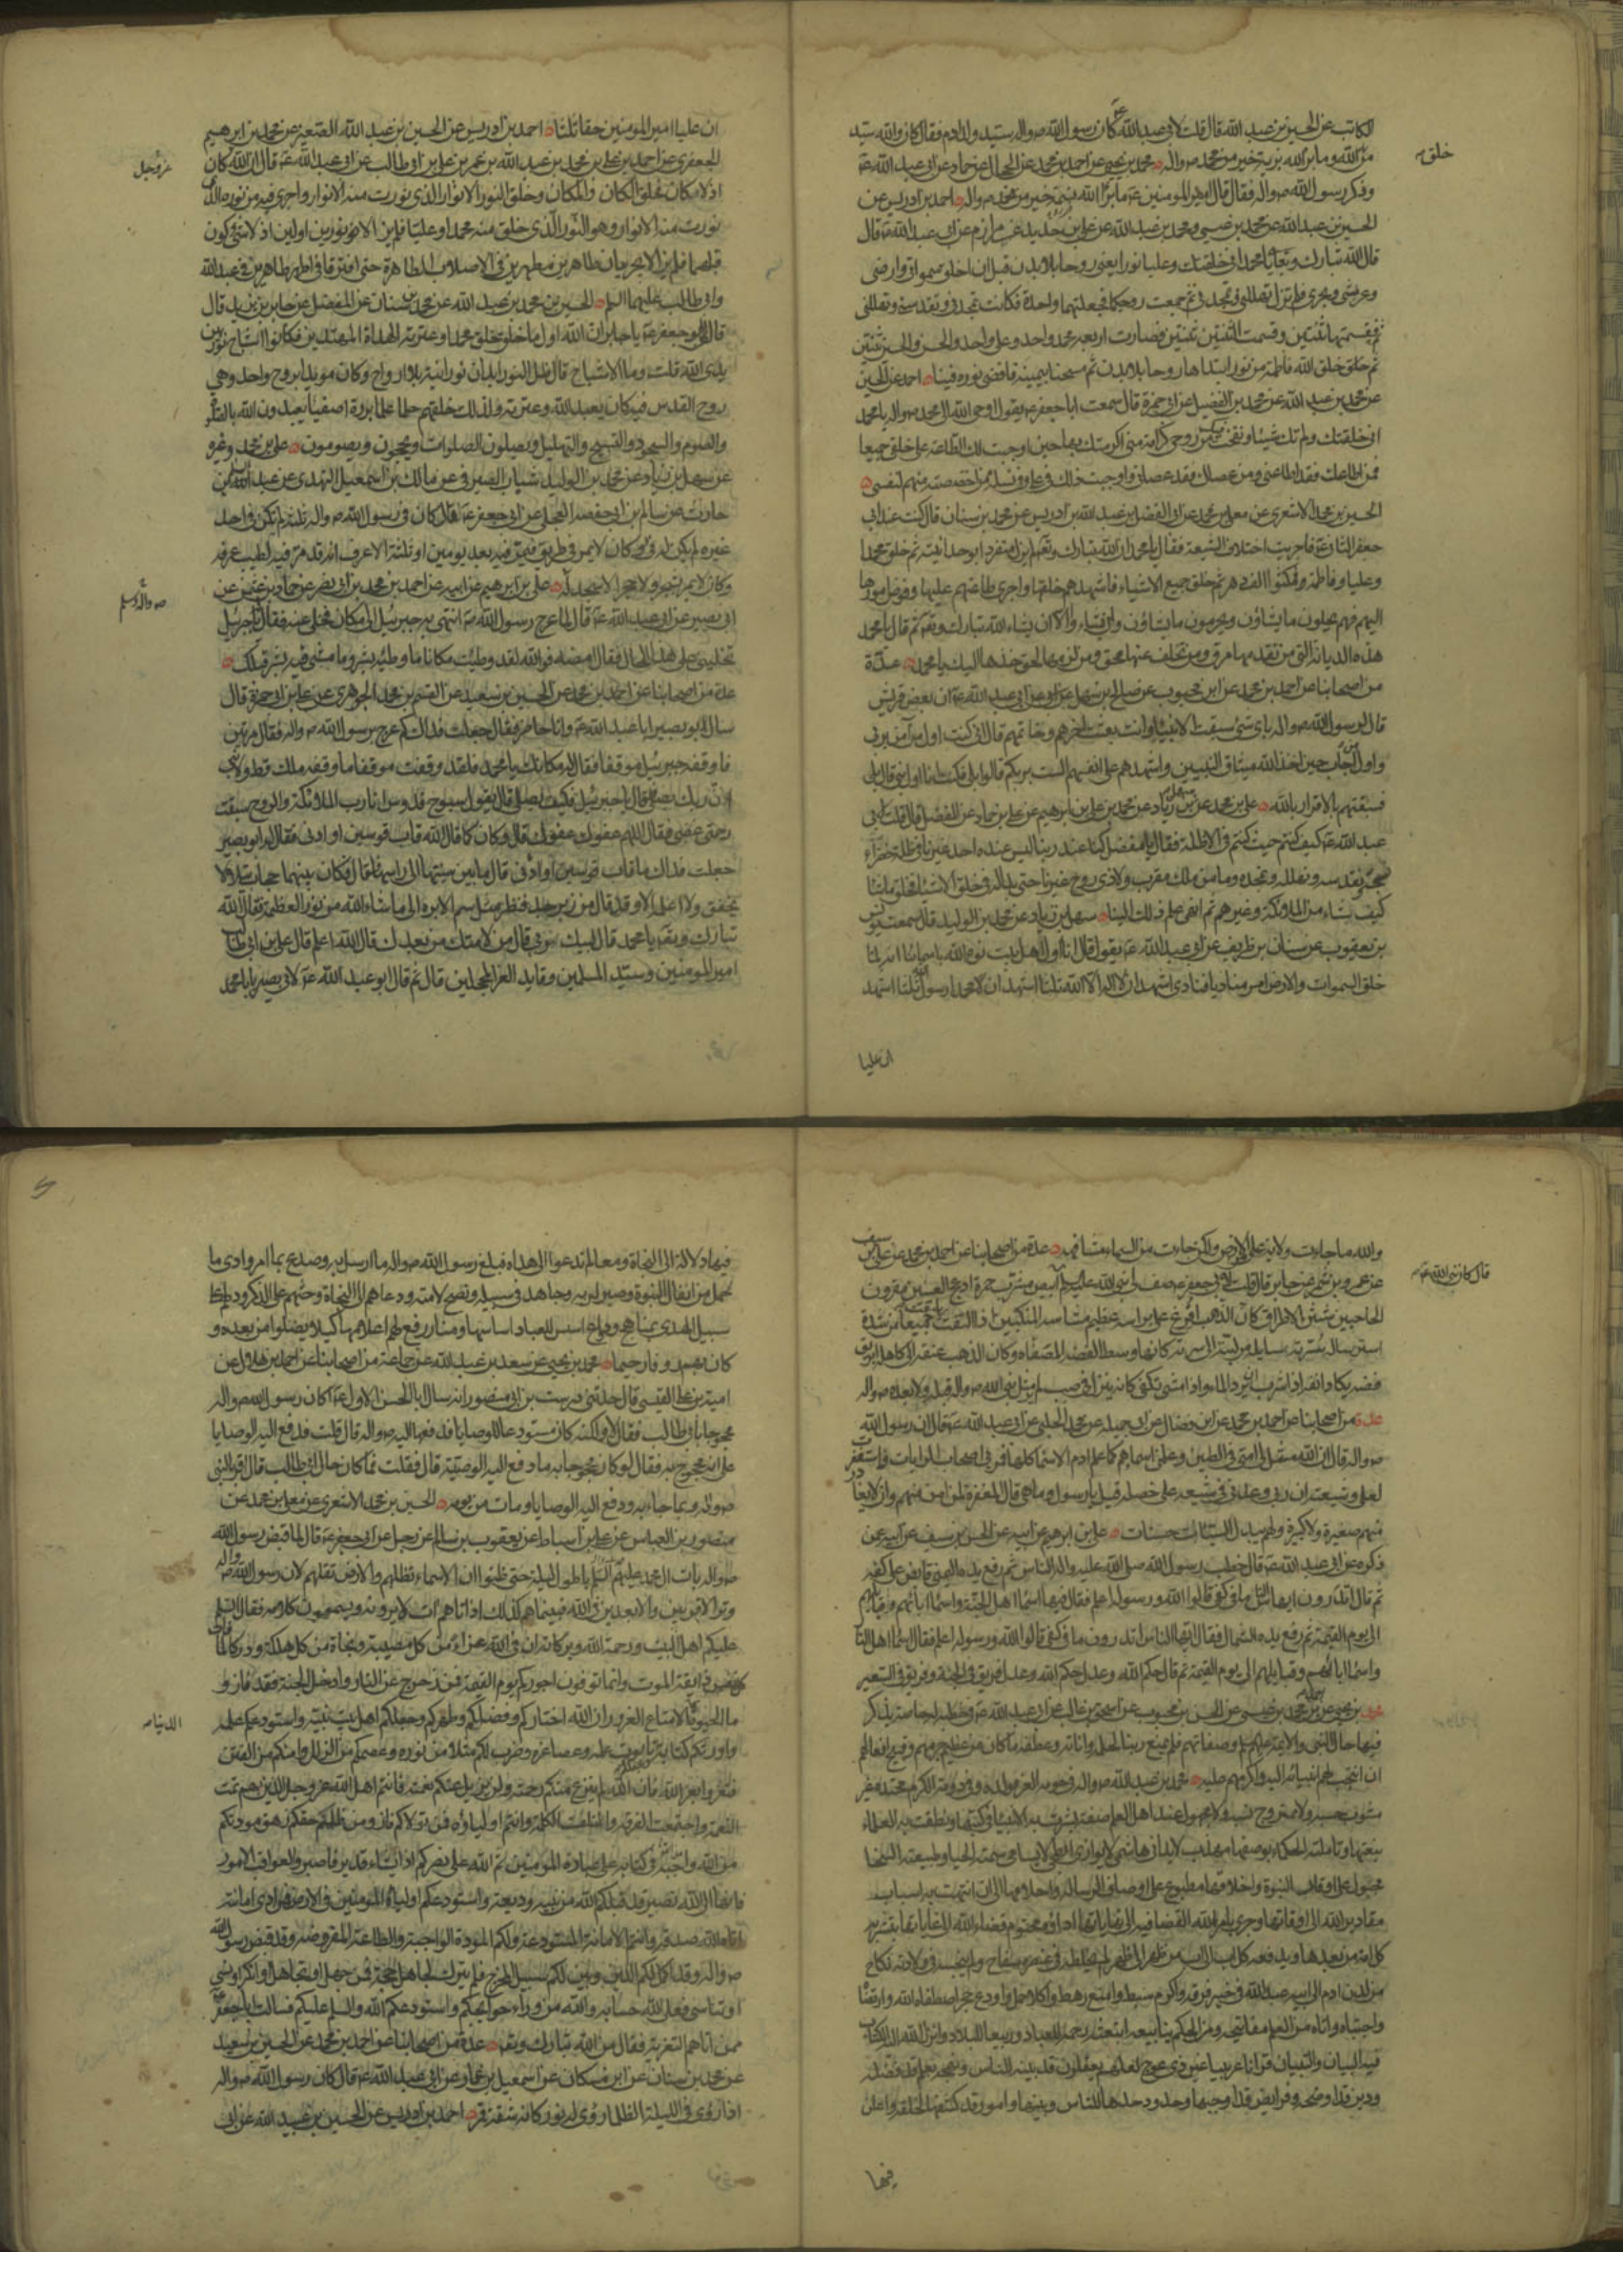 الكاتب عن الحسين بن عبد الله قال قلت لابى عبد الله عَ كان رسول الله صَ واله سيد ولد ادم فقال كان والله سيد
من خلق الله وما برا الله برية خيرا من محمد صَ واله محمد بن يحيى عن احمد بن محمد عن الحجال عن حماد عن ابى عبد الله عَ
وذكر رسول الله صَ واله فقال قال امير المومنين عَ ما برا الله نسمة خير من محمد صَ واله احمد بن ادريس عن
الحسين بن عبد الله عن محمد بن عيسى ومحمد بن عبد الله عن على بن حديد عن مرازم عن ابى عبد الله عَ قال
قال الله تبارك وتعالى يا محمد انى خلقتك وعليا نورا يعنى روحا بلا بدن قبل ان اخلق سمواتى وارضى
وعرشى وبحرى فلم تزل تهللنى وتمجدنى ثم جمعت روحكما فجعلتهما واحدة فكانت تمجدنى وتقدسنى وتهللنى
ثم قسمتها ثنتين وقسمت الثنتين ثنتين فصارت اربعة محمد واحد وعلى واحد والحسن والحسين ثنتين
ثم خلق الله فاطمة من نور ابتداها روحا بلا بدن ثم مسحنا بيمينه فافضى نوره فينا احمد عن الحسين
عن محمد بن عبد الله عن محمد بن الفضيل عن ابى حمزة قال سمعت ابا جعفر عَ يقول اوحى الله الى محمد صَ واله يا محمد
انى خلقتك ولم تك شيئا ونفخت فيك من روحى كرامة منى اكرمتك بها حين اوجبت لك الطاعة على خلقى جميعا
فمن اطاعك فقد اطاعنى ومن عصاك فقد عصانى واوجبت ذلك فى على وفى نسله ممن اختصصت منهم لنفسى
الحسين بن محمد الاشعرى عن معلى بن محمد عن ابى الفضل بن عبد الله بن ادريس عن محمد بن سنان قال كنت عند ابى
جعفر الثانى عَ فاجريت اختلاف الشيعة فقال يا محمد ان الله تبارك وتعالى لم يزل متفردا بوحدانيته ثم خلق محمدا
وعليا وفاطمة فمكثوا الف دهر ثم خلق جميع الاشياء فاشهدهم خلقها واجرى طاعتهم عليها وفوض امورها
اليهم فهم يحلون ما يشاؤن ويحرمون ما يشاؤن ولن يشاء والا ان يشاء الله تبارك وتعالى ثم قال يا محمد
هذه الديانة التى من تقدمها مرق ومن تخلف عنها محق ومن لزمها لحق خذها اليك يا محمد عدة
من اصحابنا عن احمد بن محمد عن ابن محبوب عن صالح بن سهل عن ابى عبد الله عَ ان بعض قريش
قال لرسول الله صَ واله باى شئ سبقت الانبياء وانت بعثت اخرهم وخاتمهم قال انى كنت اول من آمن بربى
واول من اجاب حين اخذ الله ميثاق النبيين واشهدهم على انفسهم الست بربكم قالوا بلى فكنت انا اول نبى قال بلى
فسبقتهم بالاقرار بالله على بن محمد عن سهل بن زياد عن محمد بن على بن ابرهيم عن على بن حماد عن المفضل قال قلت لابى
عبد الله عَ كيف كنتم حيث كنتم فى الاظلة فقال يا مفضل كنا عند ربنا ليس عنده احد غيرنا فى ظلة خضراء
نسبحه ونقدسه ونهلله ونمجده وما من ملك مقرب ولا ذى روح غيرنا حتى بدا له فى خلق الاشياء فخلق ما شاء
كيف يشاء من الملائكة وغيرهم ثم انهى علم ذلك الينا سهل بن زياد عن محمد بن الوليد قال سمعت يونس
بن يعقوب عن سنان بن طريف عن ابى عبد الله عَ يقول قال انا اول اهل بيت نوه الله باسمائنا انه لما
خلق السموات والارض امر مناديا فنادى اشهد ان لا اله الا الله ثلثا اشهد ان محمدا رسول الله ثلثا اشهد
خلق صَ
ان عليا
ان عليا امير المومنين حقا ثلثا احمد بن ادريس عن الحسين بن عبد الله الصغير عن محمد بن ابرهيم
الجعفرى عن احمد بن على بن محمد بن عبد الله بن عمر بن على بن ابى طالب عن ابى عبد الله عَ قال ان الله كان
اذ لا كان فخلق الكان والمكان وخلق النور الانوار الذى نورت منه الانوار واجرى فيه من نوره الذى
نورت منه الانوار وهو النور الذى خلق منه محمدا وعليا فلم يزالا نورين اولين اذ لا شئ كون
قبلهما فلم يزالا يجريان طاهرين مطهرين فى الاصلاب الطاهرة حتى افترقا فى اطهر طاهرين فى عبد الله
وابى طالب عليهما السلم الحسين بن محمد بن عبد الله عن محمد بن سنان عن المفضل عن جابر بن يزيد قال
قال لى ابو جعفر عَ يا جابر ان الله اول ما خلق خلق محمدا وعترته الهداة المهتدين فكانوا اشباح نور بين
يدى الله قلت وما الاشباح قال ظل النور ابدان نورانية بلا ارواح وكان مويدا بروح واحد وهى
روح القدس فبه كان يعبد الله وعترته ولذلك خلقهم حلماء علماء بررة اصفياء يعبدون الله بالصلوة
والصوم والسجود والتسبيح والتهليل ويصلون الصلوات ويحجون ويصومون على بن محمد وغيره
عن سهل بن زياد عن محمد بن الوليد شباب الصيرفى عن مالك بن اسمعيل النهدى عن عبد السلم بن
حارث عن سالم بن ابى حفصه العجلى عن ابى جعفر عَ قال كان فى رسول الله صَ واله ثلثة لم تكن فى احد
غيره لم يكن له فئ وكان لا يمر فى طريق فيمر فيه بعد يومين او ثلثة الا عرف انه قد مر فيه لطيب عرفه
وكان لا يمر بحجر ولا شجر الا سجد له على بن ابرهيم عن ابيه عن احمد بن محمد بن ابى نصر عن حماد بن عثمن عن
ابى بصير عن ابى عبد الله عَ قال لما عرج رسول الله صَ انتهى به جبرئيل الى مكان فخلى عنه فقال له يا جبرئيل
تخلينى على هذا الحال فقال امضه فوالله لقد وطئت مكانا ما وطئه بشر وما مشى فيه بشر قبلك
عدة من اصحابنا عن احمد بن محمد عن الحسين بن سعيد عن القسم بن محمد الجوهرى عن على بن ابى حمزة قال
سال ابو بصير ابا عبد الله عَ وانا حاضر فقال جعلت فداك كم عرج برسول الله صَ واله فقال مرتين
فاوقفه جبرئيل موقفا فقال له مكانك يا محمد فلقد وقفت موقفا ما وقفه ملك قط ولا نبى
ان ربك يصلى قال يا جبرئيل فكيف يصلى قال يقول سبوح قدوس انا رب الملائكة والروح سبقت
رحمتى غضبى فقال اللهم عفوك عفوك قال وكان كما قال الله قاب قوسين او ادنى فقال له ابو بصير
جعلت فداك ما قاب قوسين او ادنى قال ما بين سيتها الى راسها فقال فكان بينهما حجاب يتلالا
يخفق ولا اعلمه الا وقد قال من زبرجد فنظر مثل سم الابرة الى ما شاء الله من نور العظمة فقال الله
تبارك وتعَ يا محمد قال لبيك ربى قال من لامتك من بعدك قال الله اعلم قال على بن ابى طالب
امير المومنين وسيد المسلمين وقايد الغر المحجلين قال ثم قال ابو عبد الله عَ لابى بصير يا با محمد
عزوجل
صَ واله وسلم
والله ما جاءت ولاية على من الارض ولكن جاءت من السماء مشافهة عدة من اصحابنا عن احمد بن محمد عن على بن سيف
عن عمرو بن شمر عن جابر قال قلت لابى جعفر عَ صف لى نبى الله عليه السلم ابيض مشرب حمرة ادعج العينين مقرون
الحاجبين شثن الاطراف كان الذهب افرغ على براثنه عظيم مشاشة المنكبين اذا التفت يلتفت جميعا من شدة
استرساله سربته سايلة من لبته الى سرته كانها وسط الفضة المصفاة وكان عنقه الى كاهله ابريق
فضة يكاد انفه اذا شرب ان يرد الماء واذا مشى تكفى كانه ينزل فى صبب لم ير مثل نبى الله صَ واله قبله ولا بعده صَ واله
عدة من اصحابنا عن احمد بن محمد عن ابن فضال عن ابى جميلة عن محمد الحلبى عن ابى عبد الله عَ قال ان رسول الله
صَ واله قال ان الله مثل لى امتى فى الطين وعلمنى اسماءهم كما علم ادم الاسماء كلها فمر بى اصحاب الرايات فاستغفرت
لعلى وشيعته ان ربى وعدنى فى شيعة على خصلة قيل يا رسول الله وما هى قال المغفرة لمن امن منهم وان لا يغادر
منهم صغيرة ولا كبيرة ولهم يبدل السيئات حسنات على بن ابرهيم عن ابيه عن الحسن بن سيف عن ابيه عن
ذكره عن ابى عبد الله عَ قال خطب رسول الله صلى الله عليه واله الناس ثم رفع يده اليمنى قابضا على كفه
ثم قال اتدرون ايها الناس ما فى كفى قالوا الله ورسوله اعلم فقال فيها اسماء اهل الجنة واسماء ابائهم وقبايلهم
الى يوم القيمة ثم رفع يده الشمال فقال ايها الناس اتدرون ما فى كفى قالوا الله ورسوله اعلم فقال اسماء اهل النار
واسماء ابائهم وقبايلهم الى يوم القيمة ثم قال حكم الله وعدل حكم الله وعدل فريق فى الجنة وفريق فى السعير
محمد بن يحيى عن احمد بن محمد بن عيسى عن الحسن بن محبوب عن اسحق بن غالب عن ابى عبد الله عَ فى خطبة له خاصة يذكر
فيها حال النبى والائمة عليهم السلم وصفاتهم فلم يمنع ربنا لحلمه واناته وعطفه ما كان من عظيم جرمهم وقبيح افعالهم
ان انتجب لهم احب انبيائه اليه واكرمهم عليه محمد بن عبد الله صَ واله فى حومة العز مولده وفى دومة الكرم محتده غير
مشوب حسبه ولا ممزوج نسبه ولا مجهول عند اهل العلم صفته بشرت به الانبياء فى كتبها ونطقت به العلماء
بنعتها وتاملته الحكماء بوصفها مهذب لا يدانى هاشمى لا يوازى ابطحى لا يسامى شيمته الحياء وطبيعته السخاء
مجبول على اوقار النبوة واخلاقها مطبوع على اوصاف الرسالة واحلامها الى ان انتهت به اسباب
مقادير الله الى اوقاتها وجرى بامر الله القضاء فيه الى نهاياتها اداه محتوم قضاء الله الى غاياتها تبشر به
كل امة من بعدها ويدفعه كل اب الى اب من ظهر الى ظهر لم يخلطه فى عنصره سفاح ولم ينجسه فى ولادته نكاح
من لدن ادم الى ابيه عبد الله فى خير فرقة واكرم سبط وامنع رهط واكلا حمل واودع حجر اصطفاه الله وارتضاه
واجتباه واتاه من العلم مفاتيحه ومن الحكم ينابيعه ابتعثه رحمة للعباد وربيعا للبلاد وانزل الله اليه الكتاب
فيه البيان والتبيان قرانا عربيا غير ذى عوج لعلهم يعقلون قد بينه للناس ونهجه بعلم قد فصله
ودين قد اوضحه وفرايض قد اوجبها وحدود حدها للناس وبينها وامور قد كشفها لخلقه واعلن
قال كان نبى الله عَ صَ
فيها
فيها دلالة الى النجاة ومعالم تدعوا الى هداه فبلغ رسول الله صَ واله ما ارسل به وصدع بما امر وادى ما
حمل من اثقال النبوة وصبر لربه وجاهد فى سبيله ونصح لامته ودعاهم الى النجاة وحثهم على الذكر ودلهم على
سبيل الهدى بمناهج ودواع اسس للعباد اساسها ومنار رفع لهم اعلامها كيلا يضلوا من بعده و
كان بهم روفا رحيما محمد بن يحيى عن سعد بن عبد الله عن جماعة من اصحابنا عن احمد بن هلال عن
امية بن على القيسى قال حدثنى درست بن ابى منصور انه سال ابا الحسن الاول عَ اكان رسول الله صَ واله
محجوجا بابى طالب فقال لا ولكنه كان مستودعا للوصايا فدفعها اليه صَ واله قال قلت فدفع اليه الوصايا
على انه محجوج به فقال لو كان محجوجا به ما دفع اليه الوصية قال فقلت فما كان حال ابى طالب قال اقر بالنبى
صَ واله وبما جاء به ودفع اليه الوصايا ومات من يومه الحسين بن محمد الاشعرى عن معلى بن محمد عن
منصور بن العباس عن على بن اسباط عن يعقوب بن سالم عن رجل عن ابى جعفر عَ قال لما قبض رسول الله
صَ واله بات ال محمد عليهم السلم باطول ليلة حتى ظنوا ان لا سماء تظلهم ولا ارض تقلهم لان رسول الله صَ واله
وتر الاقربين والابعدين فى الله فبينما هم كذلك اذ اتاهم ات لا يرونه ويسمعون كلامه فقال السلم
عليكم اهل البيت ورحمة الله وبركاته ان فى الله عزاء من كل مصيبة ونجاة من كل هلكة ودركا لما فات
كل نفس ذايقة الموت وانما توفون اجوركم يوم القيمة فمن زحزح عن النار وادخل الجنة فقد فاز و
ما الحيوة الا متاع الغرور ان الله اختاركم وفضلكم وطهركم وجعلكم اهل بيت نبيه واستودعكم علمه
واورثكم كتابه تابوت علمه وعصا عزه وضرب لكم مثلا من نوره وعصمكم من الزلل وامنكم من الفتن
فتعزوا بعزاء الله فان الله لم ينزع منكم رحمته ولن يزيل عنكم نعمته فانتم اهل الله عز وجل الذين بهم تمت
النعمة واجتمعت الفرقة وائتلفت الكلمة وانتم اولياؤه فمن تولاكم فاز ومن ظلم حقكم زهق مودتكم
من الله واجبة فى كتابه على عباده المومنين ثم الله على نصركم اذا يشاء قدير فاصبروا لعواقب الامور
فانها الى الله تصير قد قبلكم الله من نبيه وديعة واستودعكم اولياءه المومنين فى الارض فمن ادى امانته
اتاه الله صدقه فانتم الامانة المستودعة ولكم المودة الواجبة والطاعة المفروضة وقد قبض رسول الله
صَ واله وقد اكمل لكم الدين وبين لكم سبيل المخرج فلم يترك لجاهل حجة فمن جهل او تجاهل او انكر او نسى
او تناسى فعلى الله حسابه والله من وراء حوايجكم واستودعكم الله والسلم عليكم فسالت ابا جعفر عَ
ممن اتاهم التعزية فقال من الله تبارك وتعَ عدة من اصحابنا عن احمد بن محمد عن الحسين بن سعيد
عن محمد بن سنان عن ابن مسكان عن اسمعيل بن عمار عن ابى عبد الله عَ قال كان رسول الله صَ واله
اذا رؤى فى الليلة الظلماء رؤى له نور كانه شقة قمر احمد بن ادريس عن الحسين بن عبيد الله عن ابى
الدنيا صَ